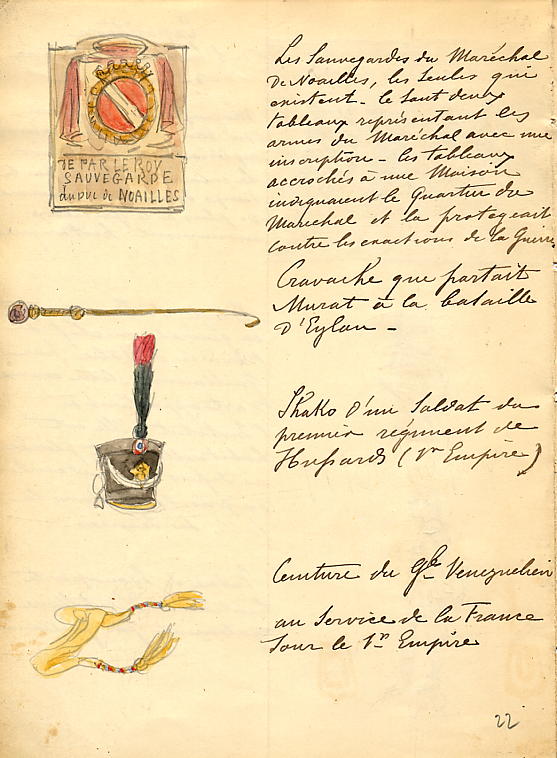 DE PAR LE ROY
SAUVEGARDE
du DUC de NOAILLES
Les Sauvegardes du Maréchal
De Noailles, les Seules qui
existent - le Sont deux
tableaux représentant les
armes du Maréchal avec une
inscription - les tableaux
accrochés à une Maison
indiquaient le Quartier du
Maréchal et la protegeait
contre les exactions de la Guerre
Cravache que portait
Murat à la bataille
D'Eylau -
Shako d'un Soldat du
premier régiment de
Hussards (1er Empire)
Ceinture du Gl Venezuelien
au Service de la France
Sous le 1er Empire
22